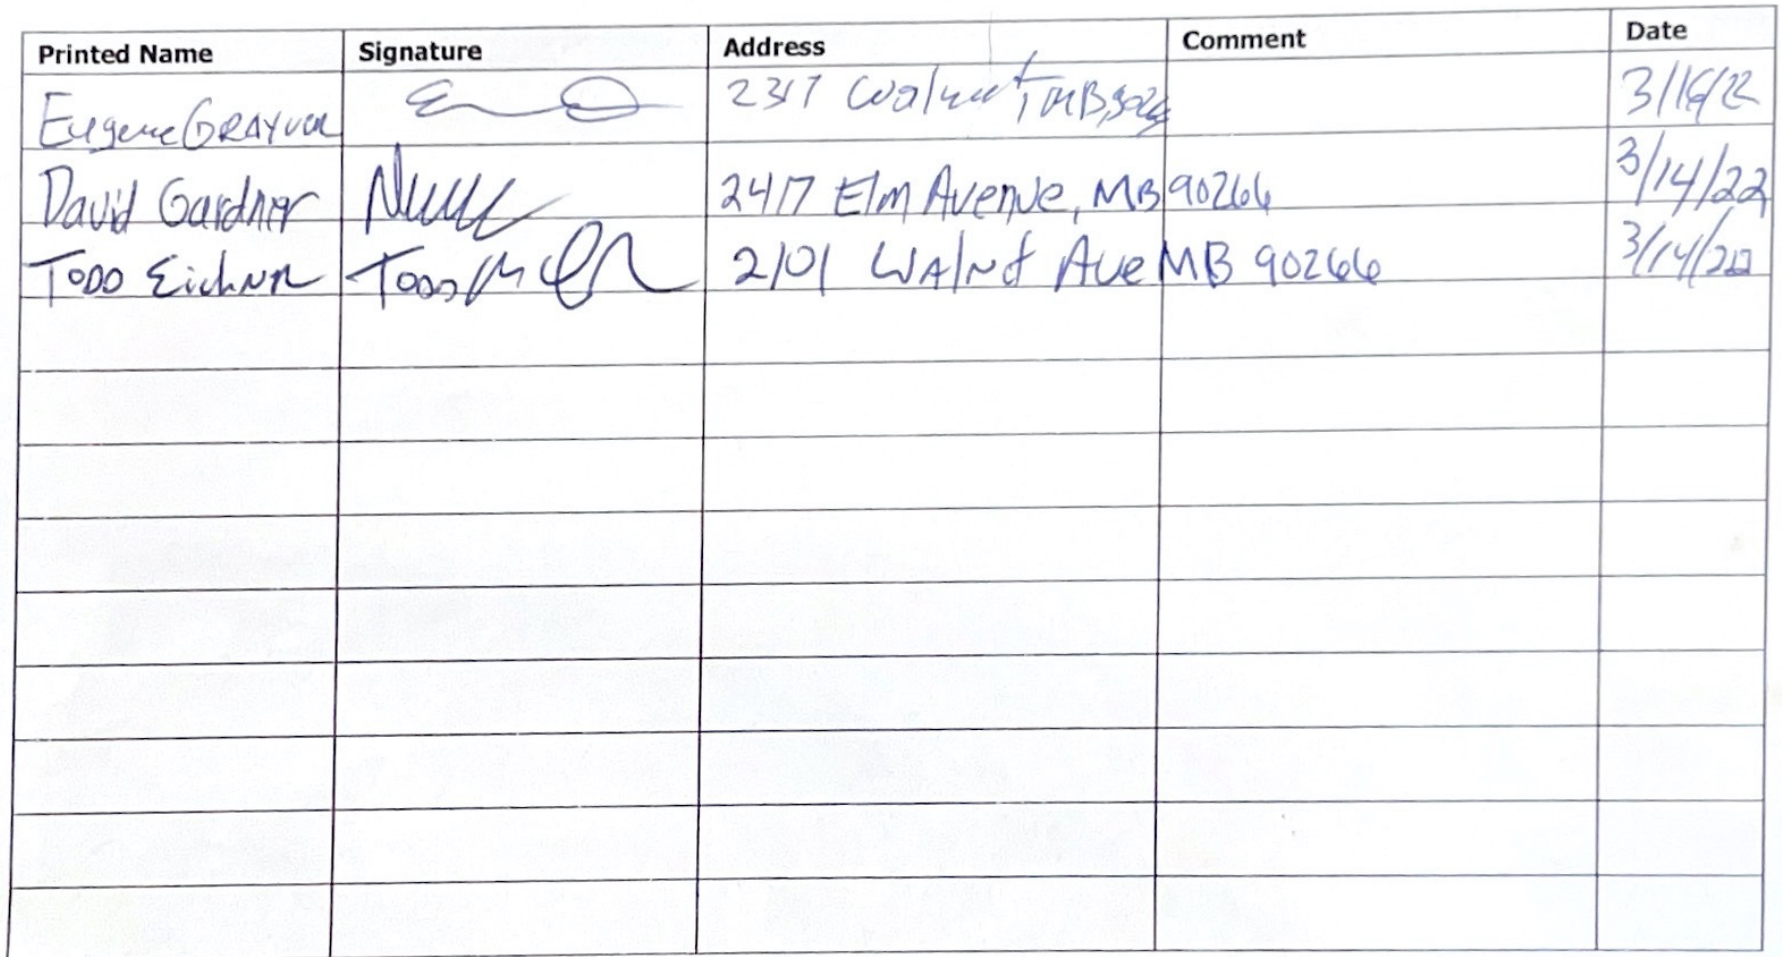 Printed Name Signature Address Comment Date
Eugene 2317 Walnut, MB,
David Gardner 2417 Elm Avenue, MB 90266 3/14/22
TODD Todd M 2101 WAlnut Ave MB 90266 3/14/22